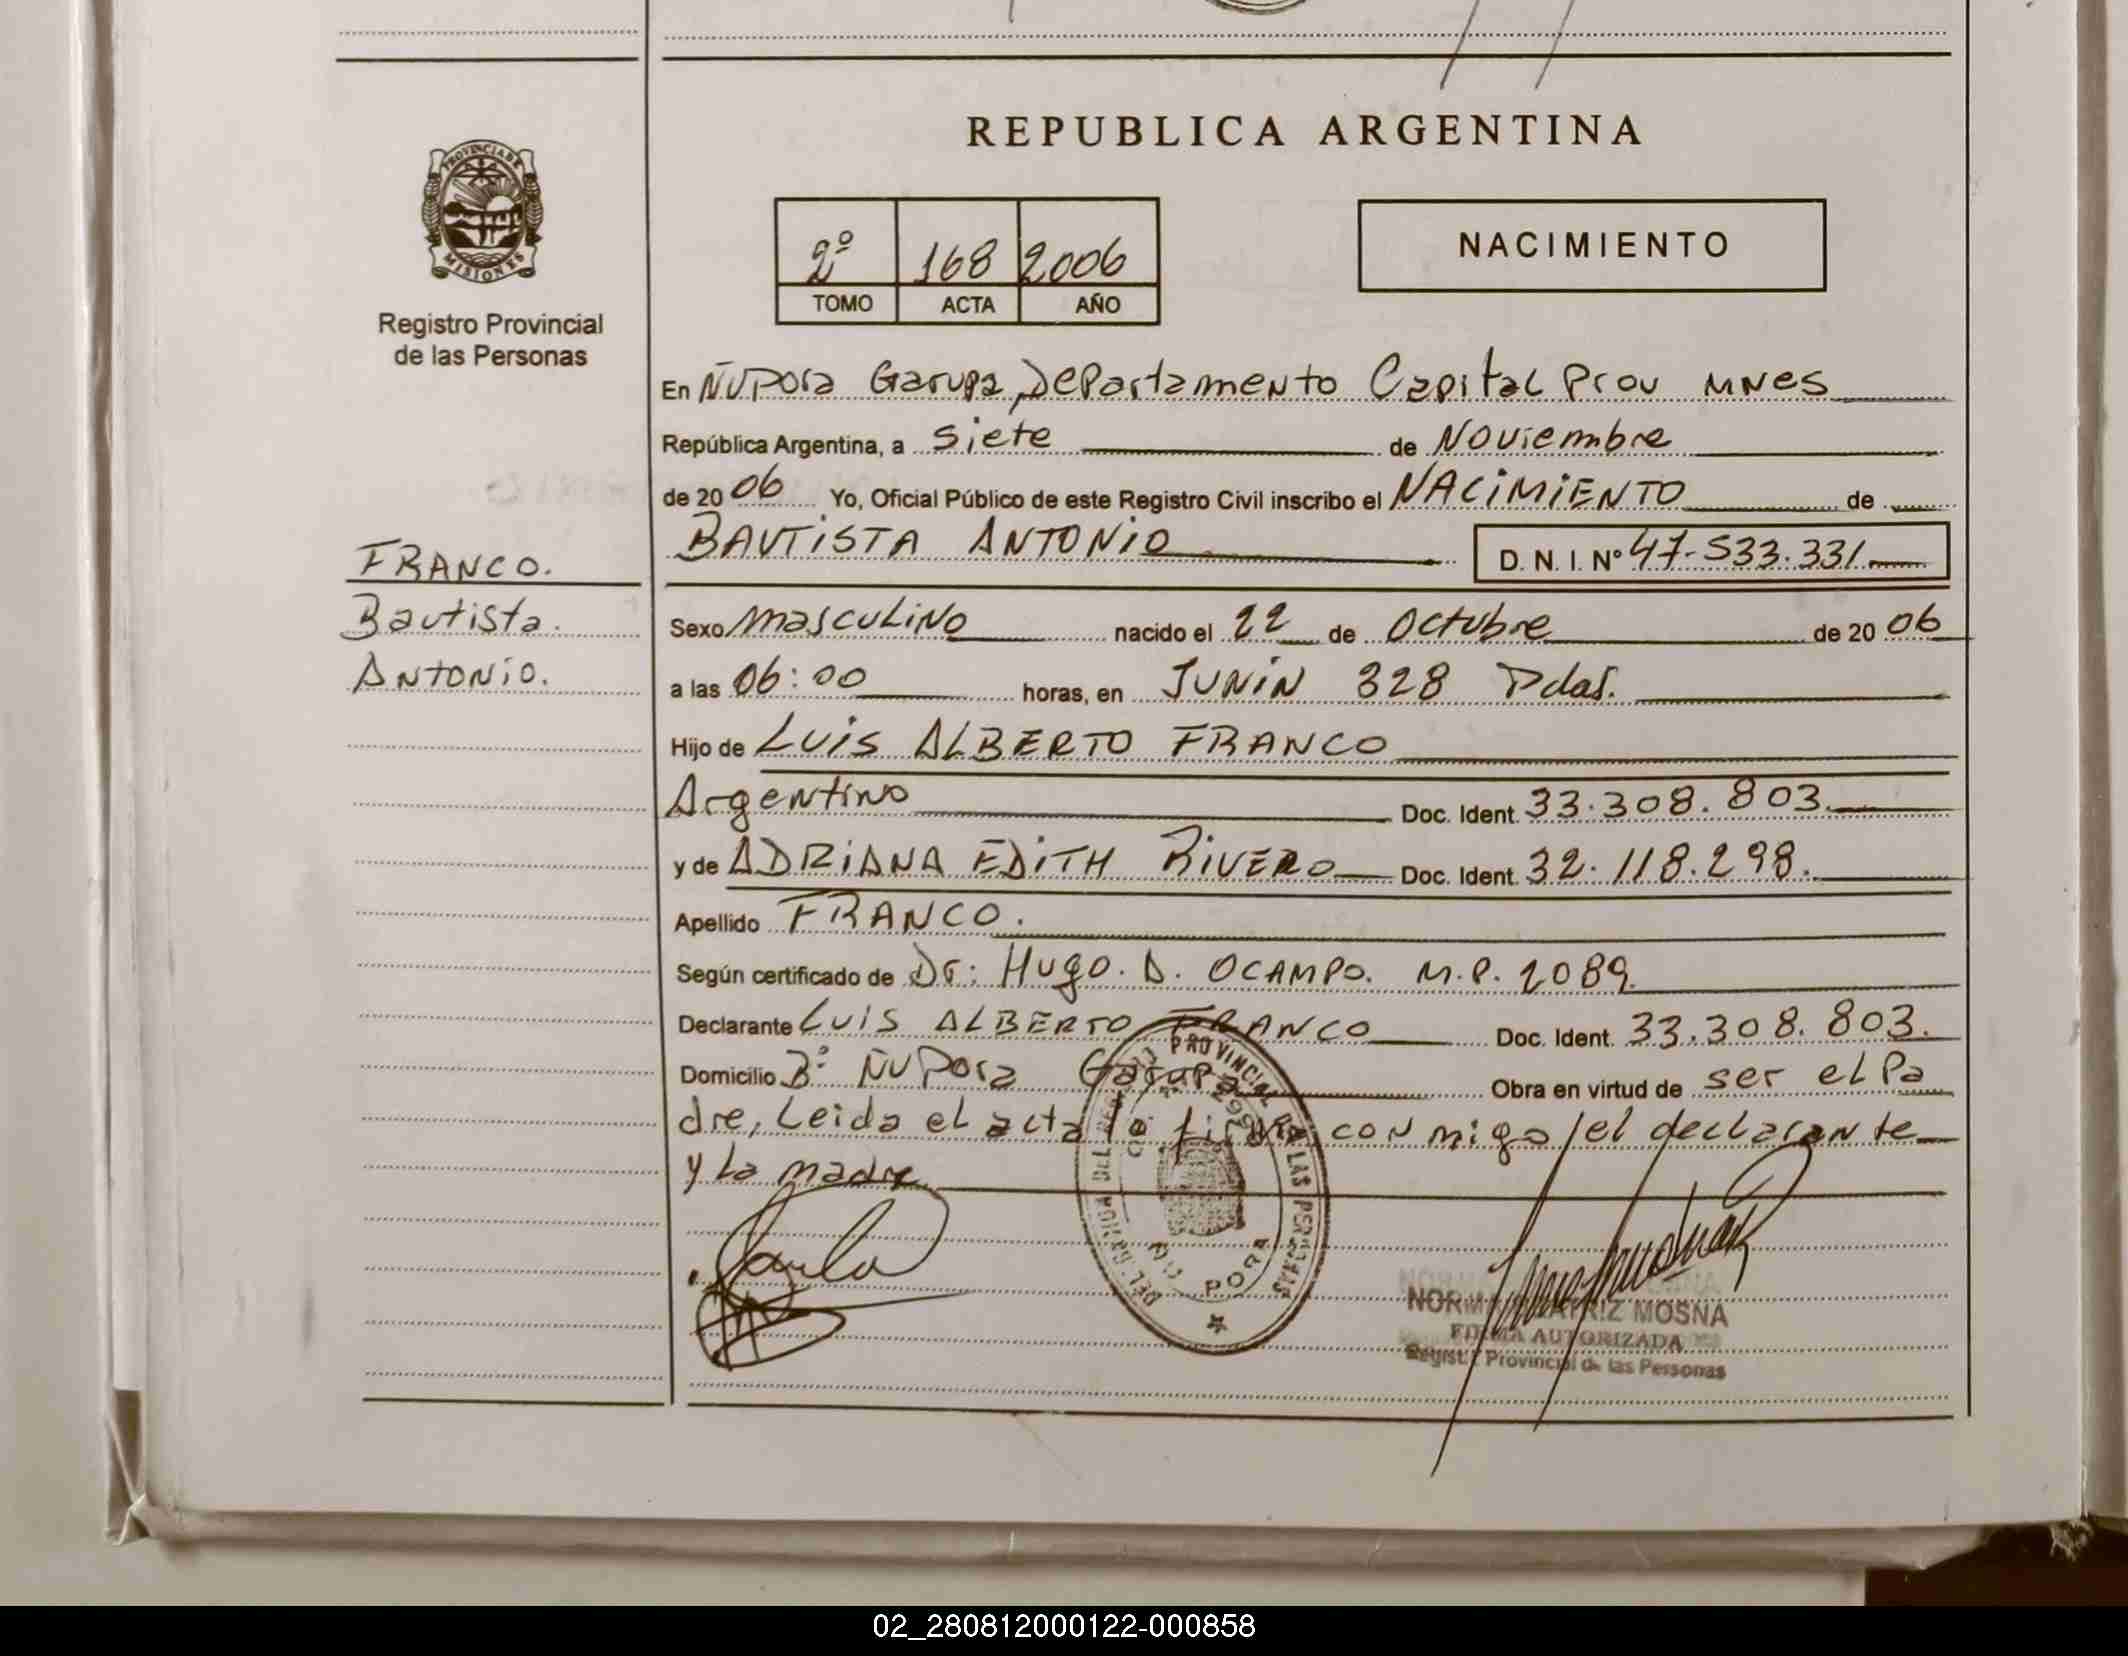 REPUBLICA ARGENTINA
PROVINCIA DE
MISIONES
Registro Provincial
de las Personas
2º 168 2006
TOMO ACTA AÑO
NACIMIENTO
En Ñu Pora Garupa, Departamento Capital Prov Mnes
República Argentina, a siete de Noviembre
de 2006 Yo, Oficial Público de este Registro Civil inscribo el NACIMIENTO de
BAUTISTA ANTONIO D. N. I. Nº 47-533.331
FRANCO.
Bautista.
Antonio.
Sexo Masculino nacido el 22 de Octubre de 2006
a las 06:00 horas, en Junin 328 Pdas.
Hijo de LUIS ALBERTO FRANCO
Argentino Doc. Ident. 33.308.803.
y de ADRIANA EDITH RIVERO Doc. Ident. 32.118.298.
Apellido FRANCO.
Según certificado de Dr: Hugo. D. OCAMPO. M.P. 2089
Declarante LUIS ALBERTO FRANCO Doc. Ident. 33.308.803.
Domicilio Bº Ñu Pora Garupa Obra en virtud de ser el Pa
dre, Leida el acta la firman con migo/el declarante
y La madre
PROVINCIAL DE LAS PERSONAS
ÑU PORA
NORMA BEATRIZ MOSNA
FIRMA AUTORIZADA
Registro Provincial de las Personas
02_280812000122-000858